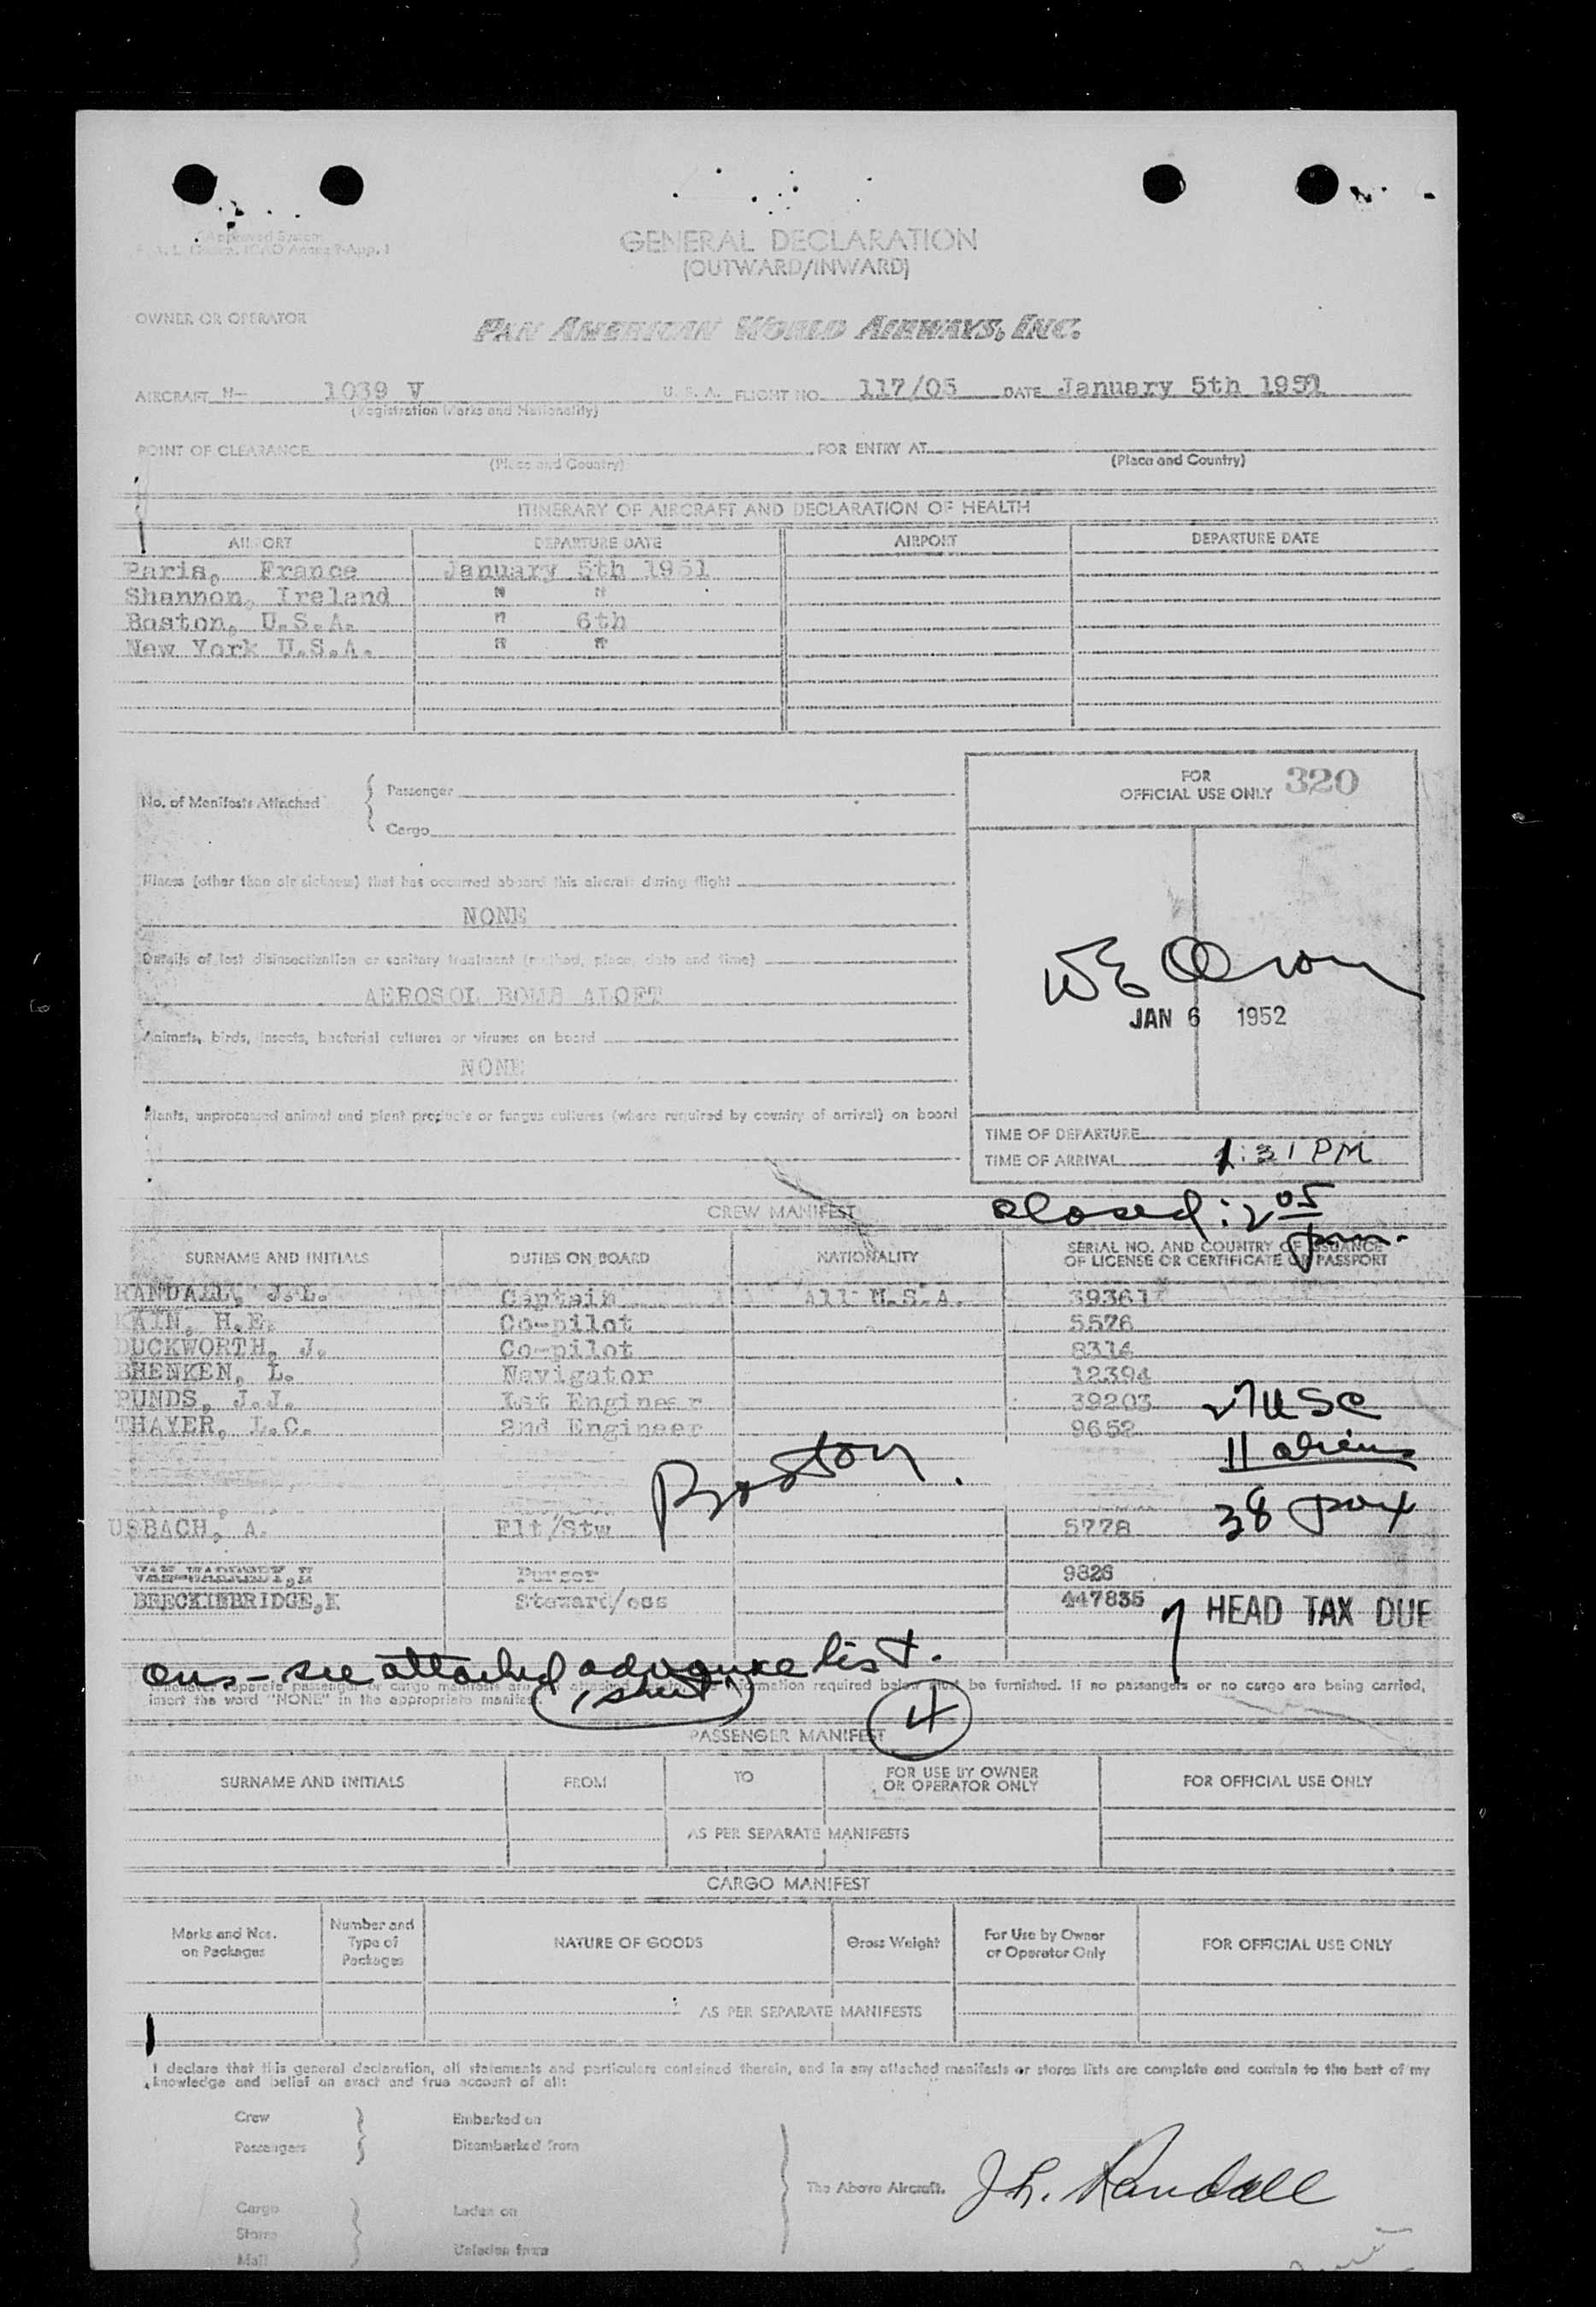 GENERAL DECLARATION
(OUTWARD/INWARD)
OWNER OR OPERATOR
PAN AMERICAN WORLD AIRWAYS, INC.
AIRCRAFT N- 1039 V U.S.A. FLIGHT NO. 117/05 DATE January 5th 1951
(Registration Marks and Nationality)
POINT OF CLEARANCE FOR ENTRY AT
(Place and Country) (Place and Country)
ITINERARY OF AIRCRAFT AND DECLARATION OF HEALTH
AIRPORT DEPARTURE DATE AIRPORT DEPARTURE DATE
Paris, France January 5th 1951
Shannon, Ireland " "
Boston, U.S.A. " 6th
New York U.S.A. " "
FOR
OFFICIAL USE ONLY 320
No. of Manifests Attached
Passenger
Cargo
Illness (other than air sickness) that has occurred aboard this aircraft during flight
NONE
Details of last disinsectization or sanitary treatment (method, place, date and time)
AEROSOL BOMB ALOFT
JAN 6 1952
Animals, birds, insects, bacterial cultures or viruses on board
NONE
Plants, unprocessed animal and plant products or fungus cultures (where required by country of arrival) on board
TIME OF DEPARTURE
TIME OF ARRIVAL 1:31 PM
closed: 2 05
pm.
CREW MANIFEST
SURNAME AND INITIALS DUTIES ON BOARD NATIONALITY SERIAL NO. AND COUNTRY OF ISSUANCE
OF LICENSE OR CERTIFICATE OR PASSPORT
RANDALL, J.L. Captain All U.S.A. 39361
KAIN, H.E. Co-pilot 5576
DUCKWORTH, J. Co-pilot 8314
BHENKEN, L. Navigator 12394
PUNDS, J.J. 1st Engineer 39203
THAYER, L.C. 2nd Engineer 9652
27 USC
11 aliens
38 pax
Boston.
USBACH, A. Flt/Stw 5778
Purser 9826
BRECKINBRIDGE,K Steward/ess 447835
7 HEAD TAX DUE
ons - see attached advance list.
1 sheet
4
insert the word "NONE" in the appropriate manifest
information required below must be furnished. If no passengers or no cargo are being carried,
PASSENGER MANIFEST
SURNAME AND INITIALS FROM TO FOR USE BY OWNER
OR OPERATOR ONLY FOR OFFICIAL USE ONLY
AS PER SEPARATE MANIFESTS
CARGO MANIFEST
Marks and Nos.
on Packages
Number and
Type of
Packages
NATURE OF GOODS
Gross Weight
For Use by Owner
or Operator Only
FOR OFFICIAL USE ONLY
AS PER SEPARATE MANIFESTS
I declare that this general declaration, all statements and particulars contained therein, and in any attached manifests or stores lists are complete and contain to the best of my
knowledge and belief an exact and true account of all:
Crew Embarked on
Passengers Disembarked from
The Above Aircraft. J.L. Randall
Cargo Laden on
Stores
Mail Unladen from